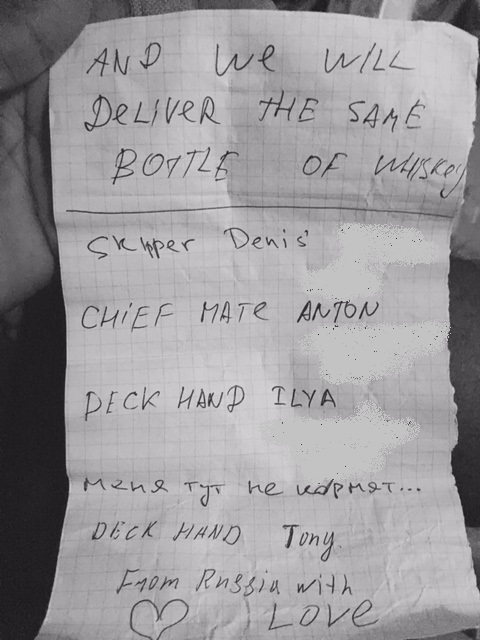 AND We WILL
DeLiVeR THE SAME
BOTTLE OF WHISKey
Skipper Denis
CHiEF MATe ANTON
DECK HAND ILYA
меня тут не кормят...
DECK HAND Tony
From Russia with
LOVe